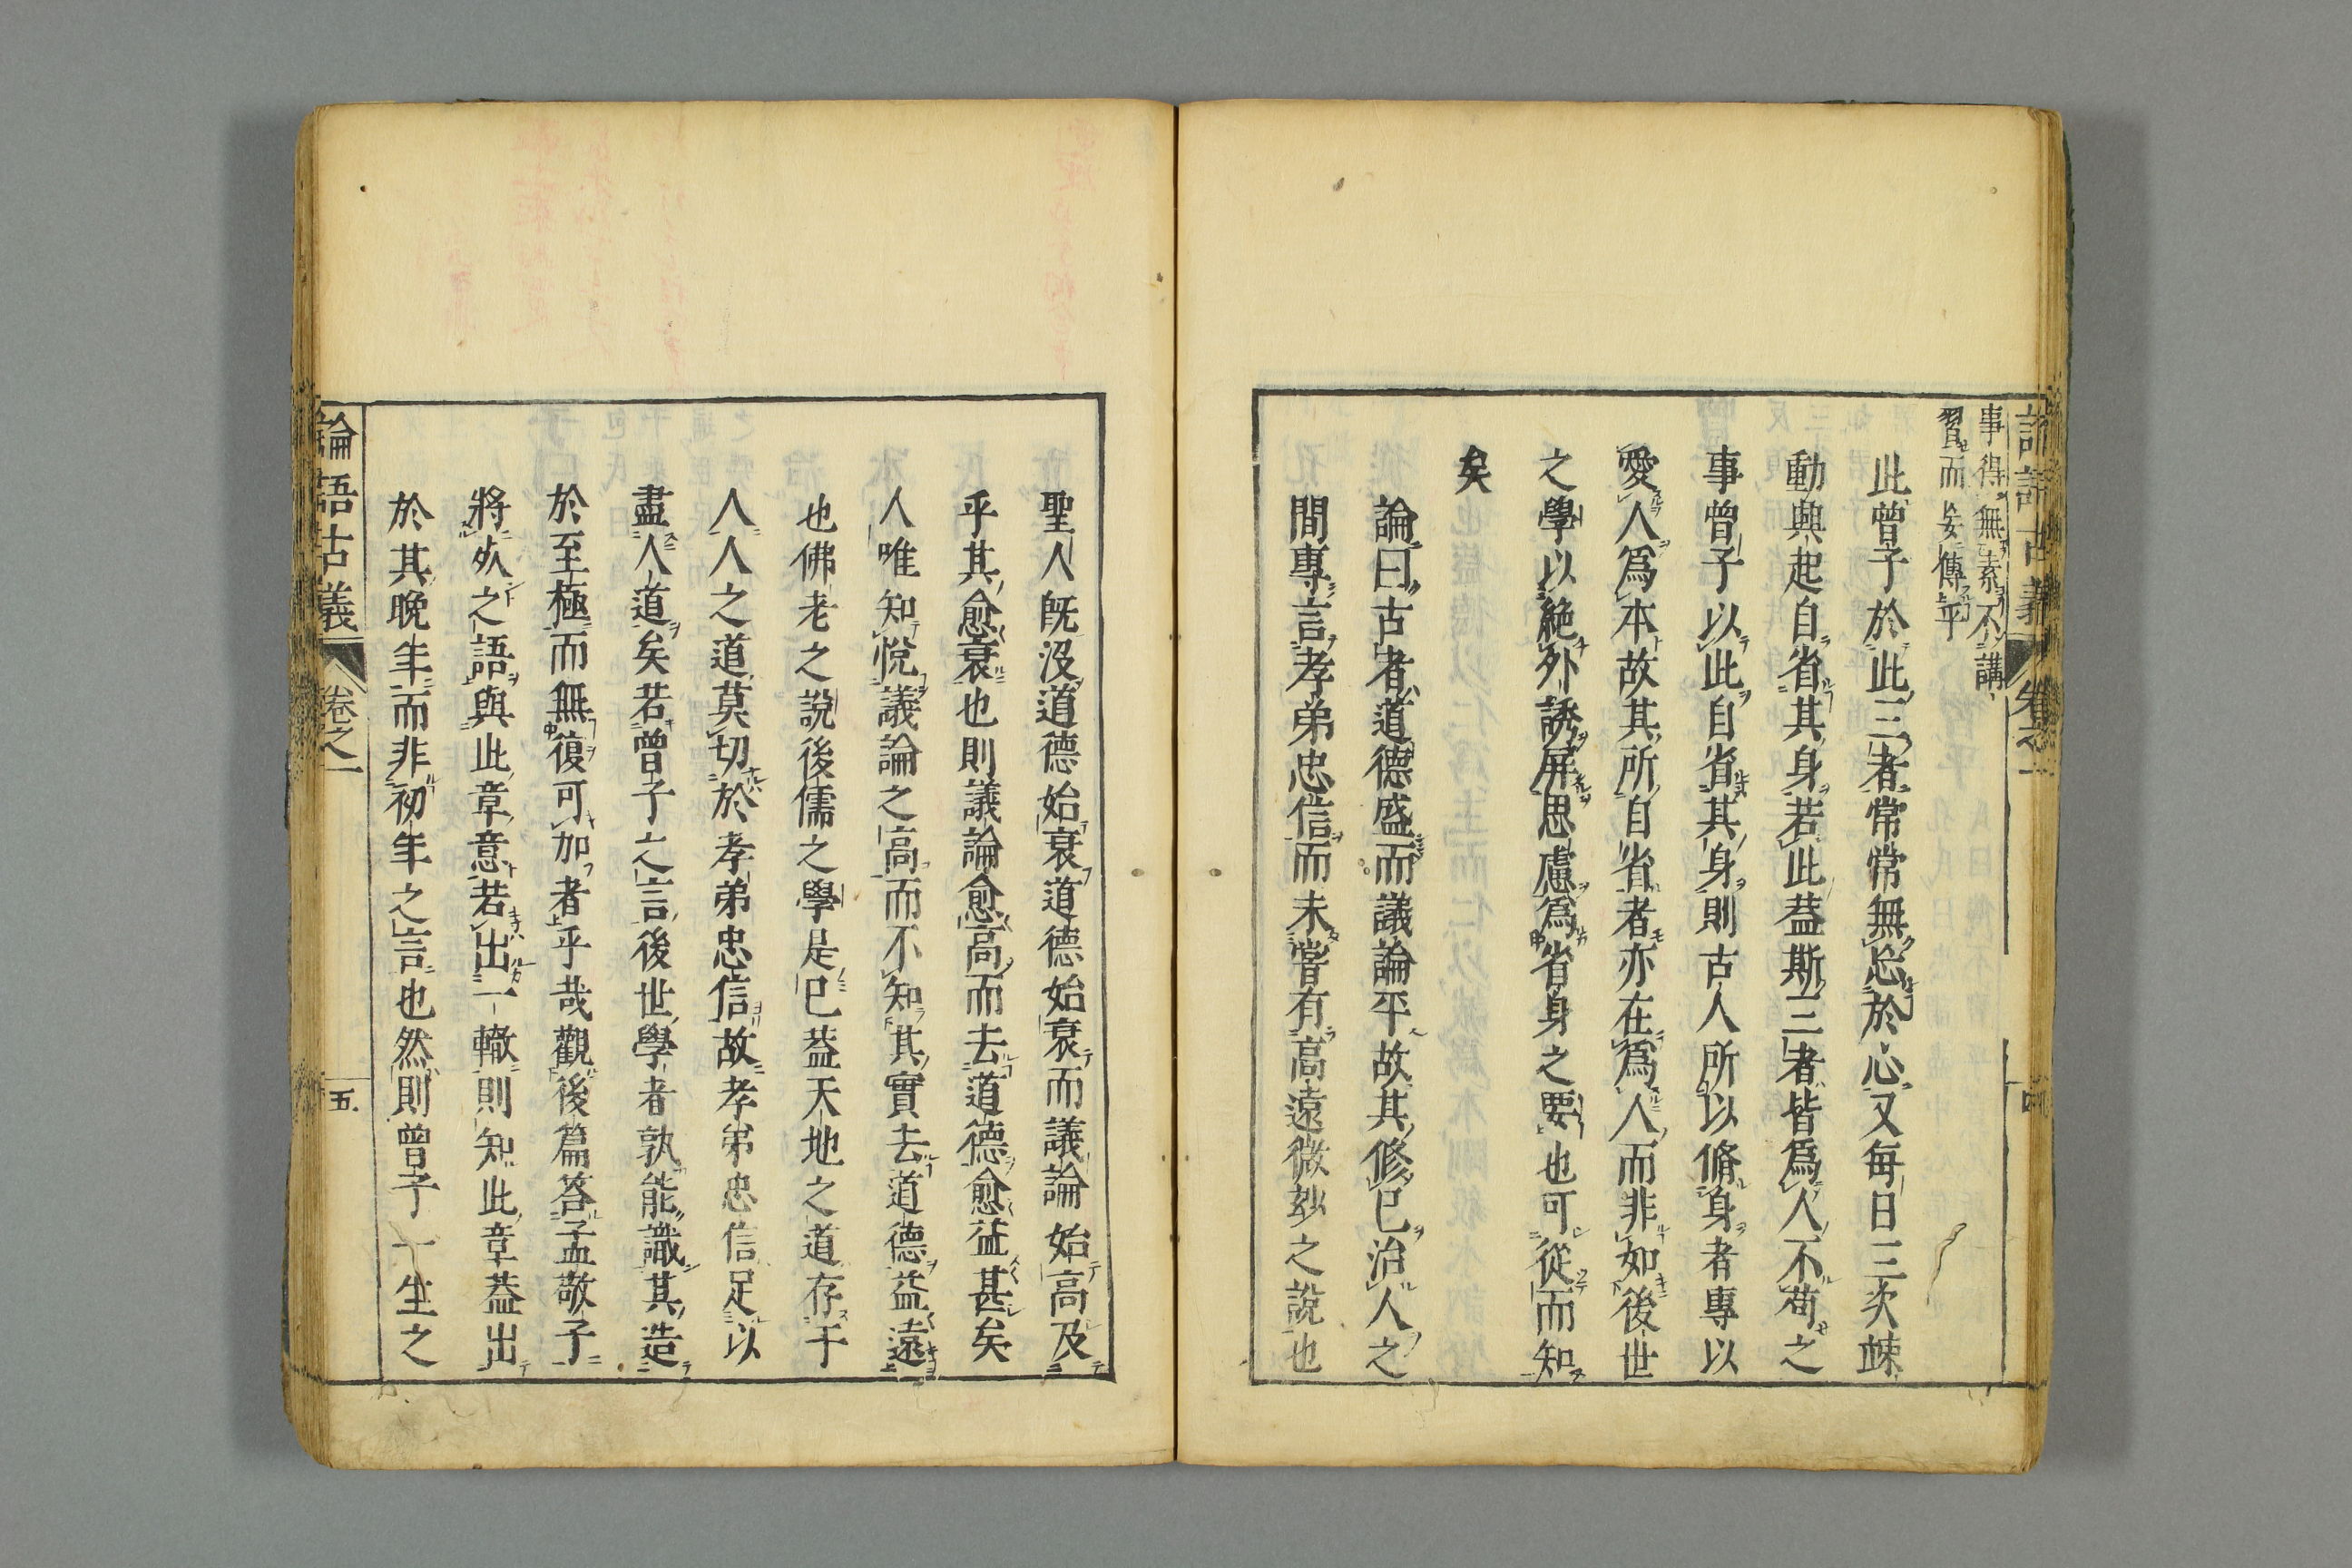 事得無素不講
習而妄傳乎
此曾子於此三者常常無忘於心又每日三次竦
動興起自省其身若此蓋斯三者皆爲人不苟之
事曾子以此自省其身則古人所以脩身者專以
愛人爲本故其所自省者亦在爲人而非如後世
之學以絶外誘屏思慮爲省身之要也可從而知
矣
論曰古者道德盛而議論平故其修己治人之
間專言孝弟忠信而未嘗有高遠微玅之說也
聖人既没道德始衰道德始衰而議論始高及
乎其愈衰也則議論愈高而去道德愈益甚矣
人唯知悅議論之高而不知其實去道德益遠
也佛老之說後儒之學是已蓋天地之道存于
人人之道莫切於孝弟忠信故孝弟忠信足以
盡人道矣若曾子之言後世學者孰能識其造
於至極而無復可加者乎哉觀後篇答孟敬子
將死之語與此章意若出一轍則知此章蓋出
於其晩年而非初年之言也然則曾子一生之
論語古義 卷之一 五